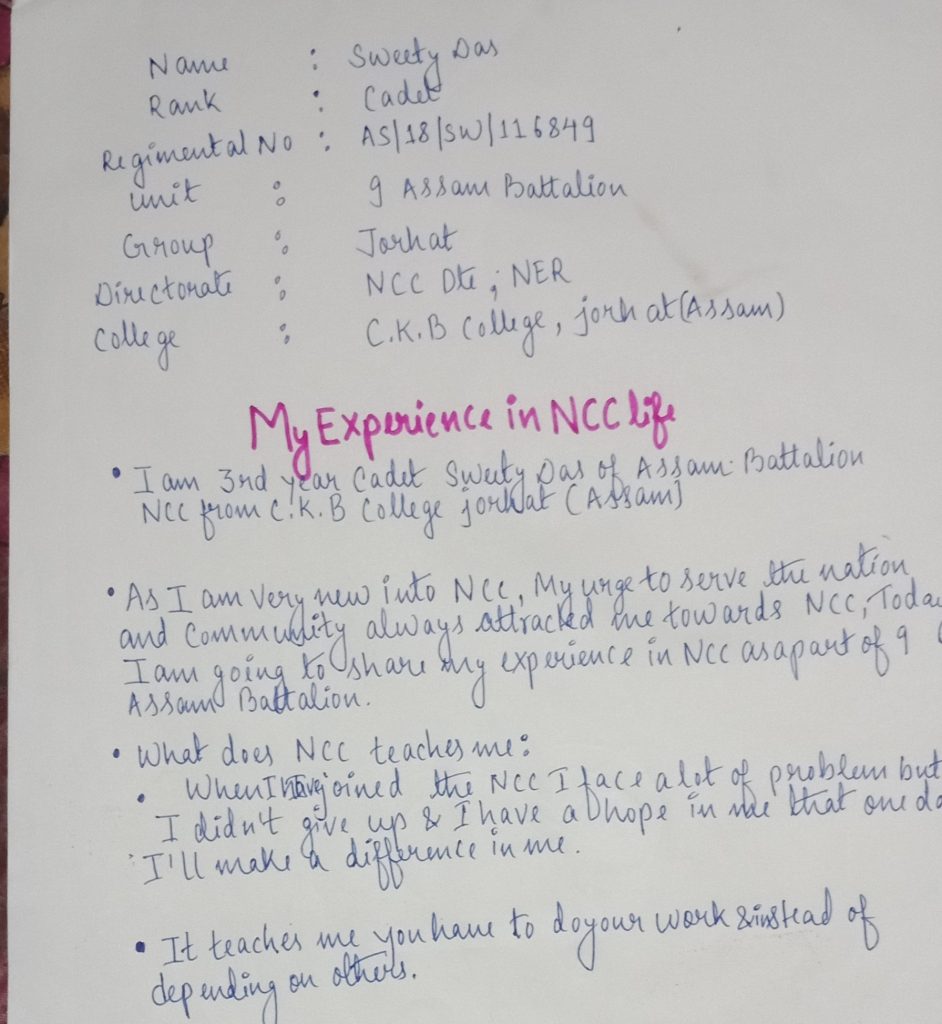 Name : Sweety Das
Rank : Cadet
Regimental No : AS/18/SW/116849
Unit : 9 Assam Battalion
Group : Jorhat
Directorate : NCC Dte ; NER
College : C.K.B College, jorhat (Assam)
My Experience in NCC life
• I am 3rd year Cadet Sweety Das of Assam Battalion
NCC from C.K.B College jorhat (Assam)
• As I am very new into NCC, My urge to serve the nation
and Community always attracted me towards NCC, Today
I am going to share my experience in NCC as a part of 9
Assam Battalion.
• What does NCC teaches me:
• When I have joined the NCC I face a lot of problem but
I didn't give up & I have a hope in me that one da
I'll make a difference in me.
• It teaches me you have to do your work & instead of
depending on others.